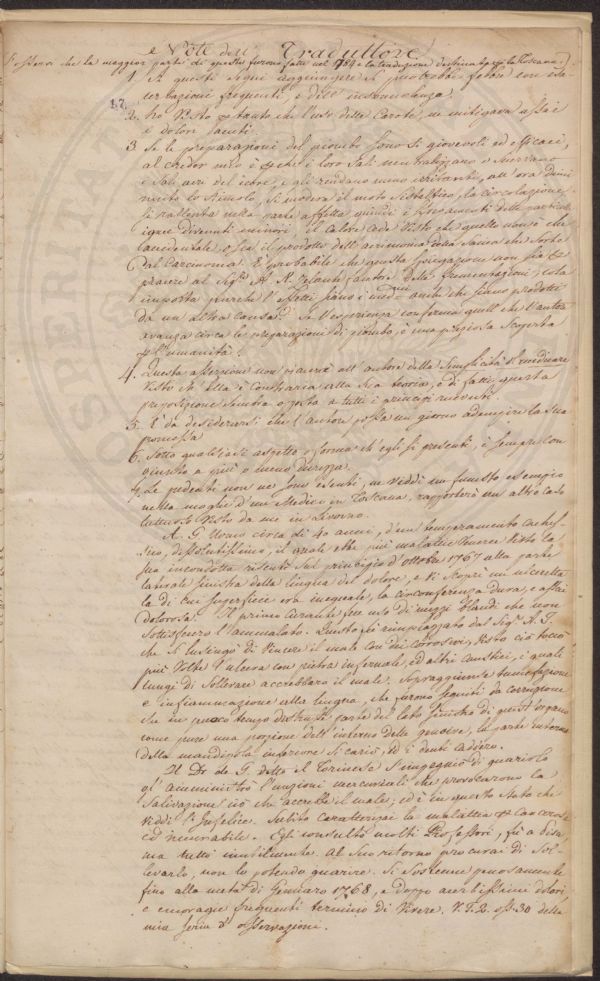 e Note del Traduttore
che la maggior parte di queste furono fatte nel 1784 e la traduzione destinata per la Toscana
1 A questi segni aggiungere si potrebbe febre con esa-
cerbazioni frequenti, e dell' insonnolenza.
17.
2. ho visto pertanto che l'uso delle Carote, ne mitigava assai
i dolori
3 Se le preparazioni del piombo sono sì giovevoli ed efficaci,
al creder mio è perche i loro Sali neutralizzano o snervano
i Sali acri del icore, e gli rendano meno irritanti, all' ora dimi
nuito lo stimolo, si modera il moto sistaltico, la circolazione
si rallenta nella parte affetta quindi i sfregamenti delle particole
ignee divenuti minori il calore cede visto che questo non è che
accidentale o sia il prodotto dell' acrimonia della sanea che sorte
dal Carcinoma. È probabile che questa spiegazione non sia per
piacere al Sigr. A. R. zelante fautore delle fermentazioni; cola
importa purche l' effetti siano i medmi. anche che siano prodotti
da un' altra causa? Se l' esperienza conferma quell che l' autore
avanza circa le preparazioni di piombo, è una preziosa scoperta
per l'umanità.
4. Questa asserzione non piacerà all' autore della Semplicità del medicare
visto ch' ella è contraria alla sua teoria, è di fatti questa
proposizione sembra opposta a tutti i principj ricevuti.
5. È da desiderarsi che l' autore possa un giorno adempire la sua
promessa
6. Sotto qualsiasi aspetto o forma ch' egli si presenti, è sempre con
giunto a più o meno durezza.
7. Le pudenti non ne sono esenti, ne viddi un funesto esempio
nella moglie d' un Medico in Toscana, rapporterò un altro caso
luttuoso visto da me in Livorno.
A. G. Uomo circa di 40 anni, d' un temperamento cache-
tico, dissolutissimo, il quale ebbe più malattie veneree visto la
sua incondotta risentì sul principio d' ottobre 1767 alla parte
laterale sinistra della lingua del dolore, e vi scoprì un' ulceretta
la di cui superficie era ineguale, la circonferenza dura, e assai
dolorosa. Il primo curante fece uso di mezzi blandi che non
sottisfecero l' ammalato. Questo fù rimpiazzato dal Sigr. A. F.
che si lusingò di vincere il male con dei corrosivi, visto ciò toccò
più volte l' ulcera con pietra infernale, ed altri caustici, i quali
lungi di sollevare accrebbero il male. Sopraggiunse tumefazione
e infiammazione alla lingua, che furono seguiti da corruzione
che in puoco tempo distrusse parte del lato sinistro di quest' organo
come pure una porzione dell' interno delle gencive, la parte interna
della mandibola inferiore si cariò, ed i denti caddero.
Il Dr. de G. detto il Torinese s' impegnò di guarirlo
gl' amministrò l' unzioni mercuriali che provocarono la
salivazione ciò che accrebbe il male, ed è in questo stato che
viddi l' infelice. Subito caratterizai la malattia per cancerosa
ed incurabile. Egli consultò molti Professori, fù a Pisa
ma tutti inutilmente. al suo ritorno procurai di sol-
levarlo, non lo potendo guarire. Si sostenne penosamente
fino alla metà di Gennaro 1768, e doppo acerbissimi dolori,
e emoragie frequenti terminò di vivere. V. T. 2. oss. 30 della
mia serie d' osservazione.